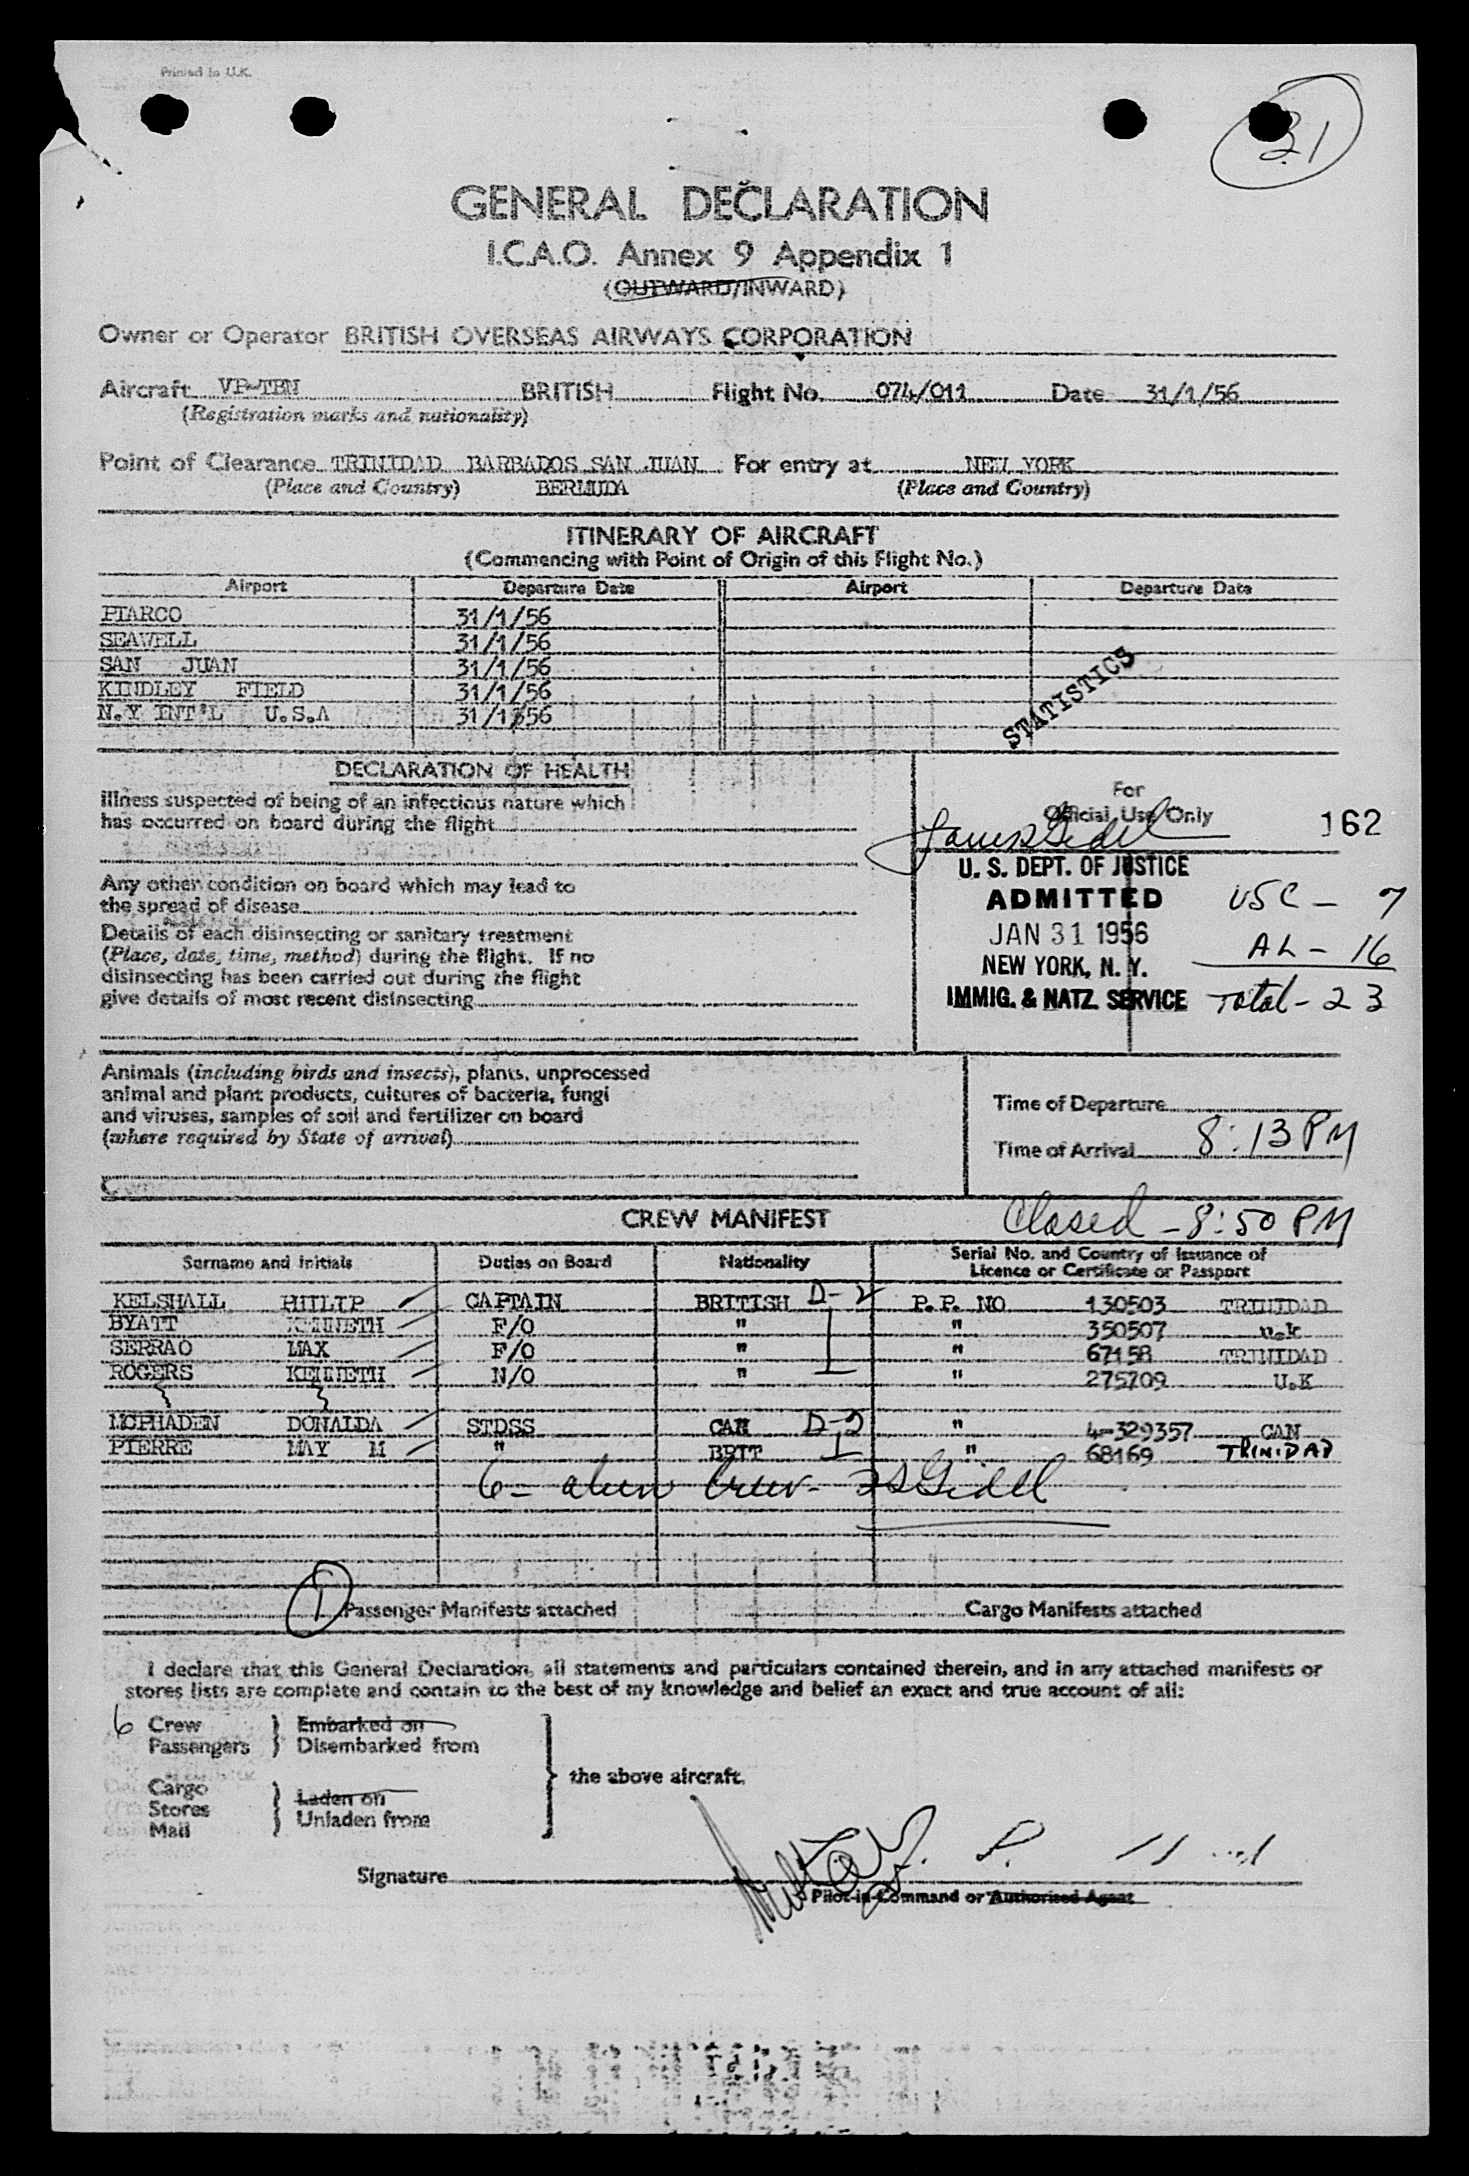 Printed in U.K.
31
GENERAL DECLARATION
I.C.A.O. Annex 9 Appendix 1
(OUTWARD/INWARD)
Owner or Operator BRITISH OVERSEAS AIRWAYS CORPORATION
Aircraft VP-TBN BRITISH Flight No. 074/011 Date 31/1/56
(Registration marks and nationality)
Point of Clearance TRINIDAD BARBADOS SAN JUAN For entry at NEW YORK
(Place and Country) BERMUDA (Place and Country)
ITINERARY OF AIRCRAFT
(Commencing with Point of Origin of this Flight No.)
Airport Departure Date Airport Departure Date
PIARCO 31/1/56
SEAWELL 31/1/56
SAN JUAN 31/1/56
KINDLEY FIELD 31/1/56
N.Y INT'L U.S.A 31/1/56
STATISTICS
DECLARATION OF HEALTH
Illness suspected of being of an infectious nature which
has occurred on board during the flight
Any other condition on board which may lead to
the spread of disease
Details of each disinsecting or sanitary treatment
(Place, date, time, method) during the flight. If no
disinsecting has been carried out during the flight
give details of most recent disinsecting
For
Official Use Only 162
U. S. DEPT. OF JUSTICE
ADMITTED USC - 7
JAN 31 1956
NEW YORK, N. Y. AL - 16
IMMIG. & NATZ. SERVICE Total - 23
Animals (including birds and insects), plants, unprocessed
animal and plant products, cultures of bacteria, fungi
and viruses, samples of soil and fertilizer on board
(where required by State of arrival)
Time of Departure
Time of Arrival 8:13 PM
Closed - 8:50 PM
CREW MANIFEST
Surname and Initials Duties on Board Nationality Serial No. and Country of Issuance of
Licence or Certificate or Passport
KELSHALL PHILIP CAPTAIN BRITISH D-2 P.P. NO 130503 TRINIDAD
BYATT KENNETH F/O " " 350507 u.k
SERRAO MAX F/O " " 67158 TRINIDAD
ROGERS KENNETH N/O " " 275709 U.K
MCPHADEN DONALDA STDSS CAN D-2 " 4-329357 CAN
PIERRE MAY M " BRIT " 68169 TRINIDAD
6 - alien crew - JSGidel
1 Passenger Manifests attached Cargo Manifests attached
I declare that this General Declaration, all statements and particulars contained therein, and in any attached manifests or
stores lists are complete and contain to the best of my knowledge and belief an exact and true account of all:
6 Crew Embarked on
Passengers Disembarked from
the above aircraft.
Cargo Laden on
Stores Unladen from
Mail
Signature
Pilot-in-Command or Authorised Agent